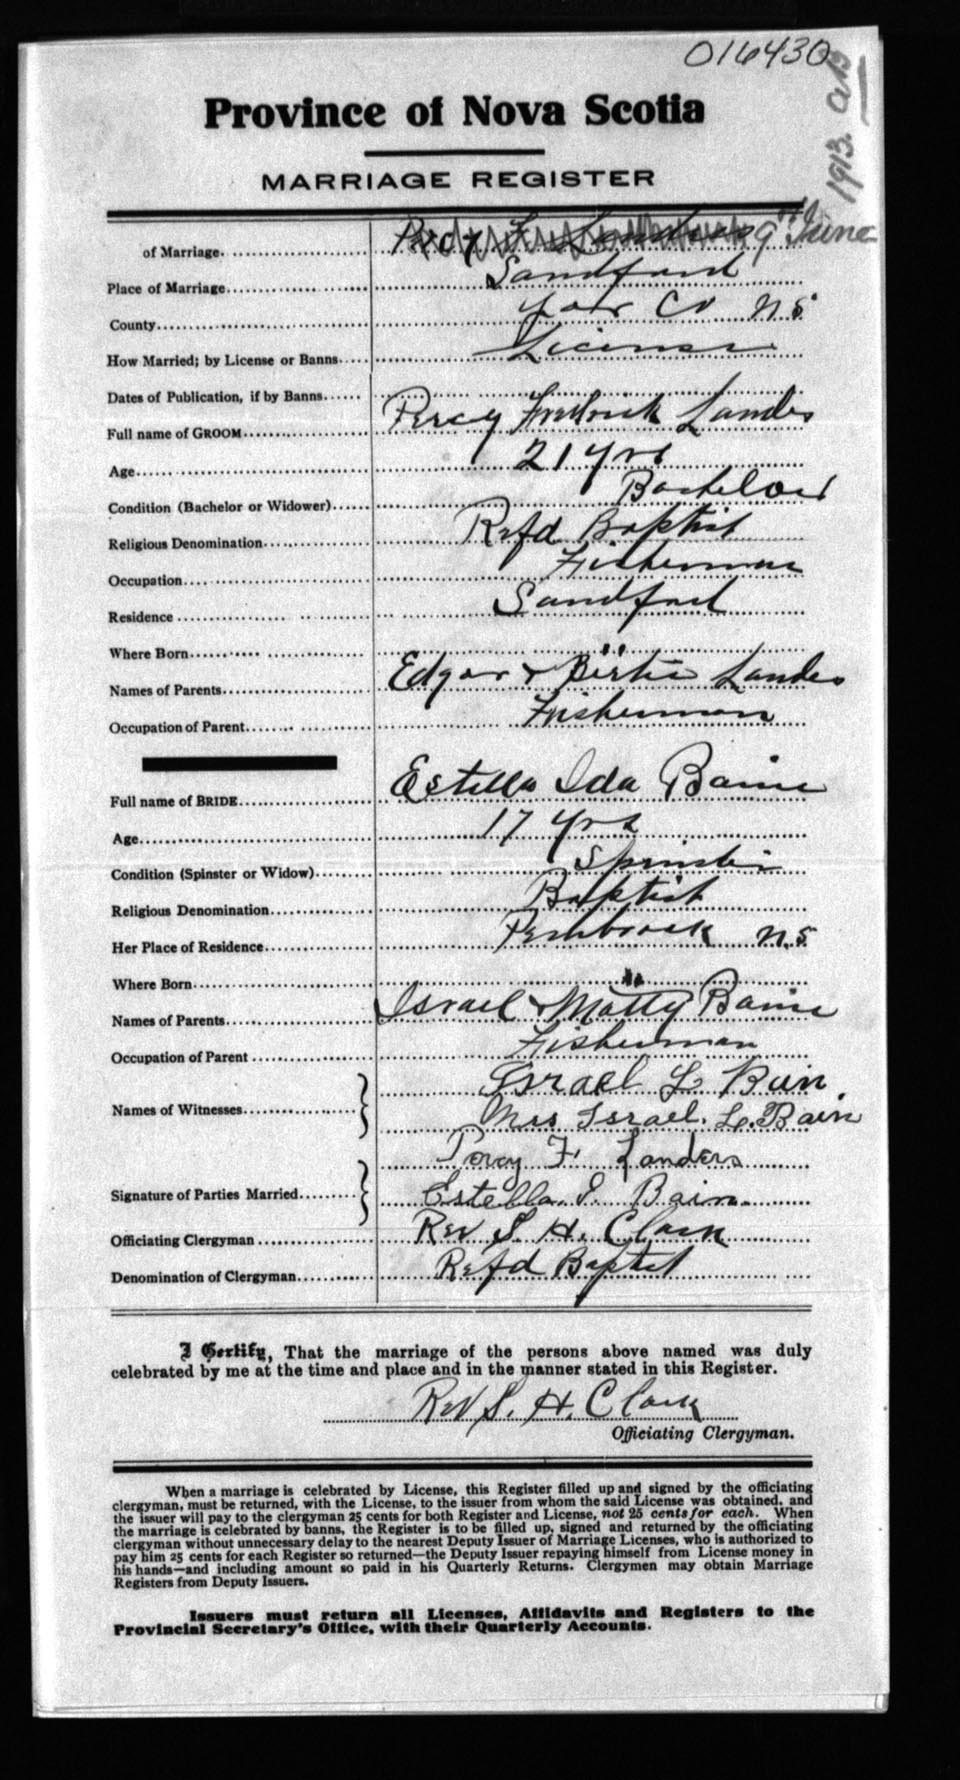 016430
1913. A.D.
Province of Nova Scotia
MARRIAGE REGISTER
of Marriage. Percy F. Landers 9th June
Place of Marriage Sandford
County Yar Co N S
How Married; by License or Banns License
Dates of Publication, if by Banns
Full name of GROOM Percy Fredrick Landes
Age 21 yrs
Condition (Bachelor or Widower) Bachelor
Religious Denomination Refd Baptist
Occupation Fisherman
Residence Sandford
Where Born " "
Names of Parents Edgar & Bertie Landes
Occupation of Parent Fisherman
Full name of BRIDE Estella Ida Bain
Age 17 yrs
Condition (Spinster or Widow) Spinster
Religious Denomination Baptist
Her Place of Residence Pembrook N.S
Where Born "
Names of Parents Israel & Matty Bain
Occupation of Parent Fisherman
Names of Witnesses Israel L Bain
Mrs Israel. L. Bain
Signature of Parties Married Percy F. Landers
Estella I. Bain.
Officiating Clergyman Rev S. H. Clark
Denomination of Clergyman Refd Baptist
I Certify, That the marriage of the persons above named was duly
celebrated by me at the time and place and in the manner stated in this Register.
Rev S. H. Clark
Officiating Clergyman.
When a marriage is celebrated by License, this Register filled up and signed by the officiating
clergyman, must be returned, with the License, to the issuer from whom the said License was obtained, and
the issuer will pay to the clergyman 25 cents for both Register and License, not 25 cents for each. When
the marriage is celebrated by banns, the Register is to be filled up, signed and returned by the officiating
clergyman without unnecessary delay to the nearest Deputy Issuer of Marriage Licenses, who is authorized to
pay him 25 cents for each Register so returned—the Deputy Issuer repaying himself from License money in
his hands—and including amount so paid in his Quarterly Returns. Clergymen may obtain Marriage
Registers from Deputy Issuers.
Issuers must return all Licenses, Affidavits and Registers to the
Provincial Secretary's Office, with their Quarterly Accounts.